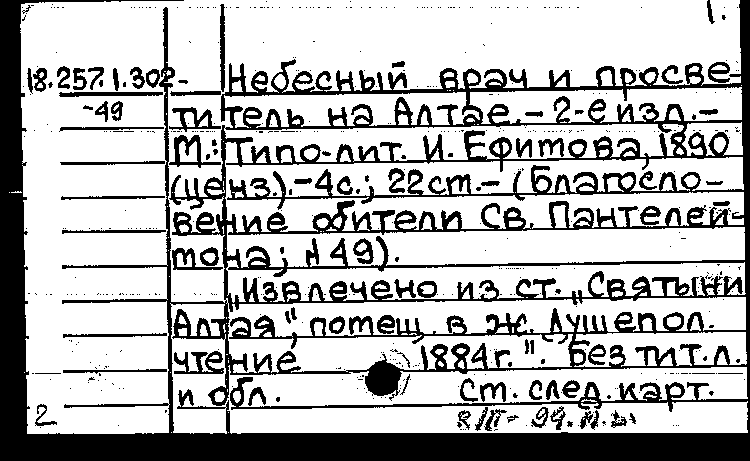 1.
18.257.1.302- Небесный врач и просве-
-49 титель на Алтае.-2-е изд.-
М.: Типо-лит. И. Ефимова, 1890
(ценз.).-4с.; 22см.-(Благосло-
вение обители Св. Пантелей-
мона; №49).
„Извлечено из ст. „Святыни
Алтая", помещ. в ж. Душепол.
чтение 1884г.". Без тит.л.
и обл. См. след. карт.
2